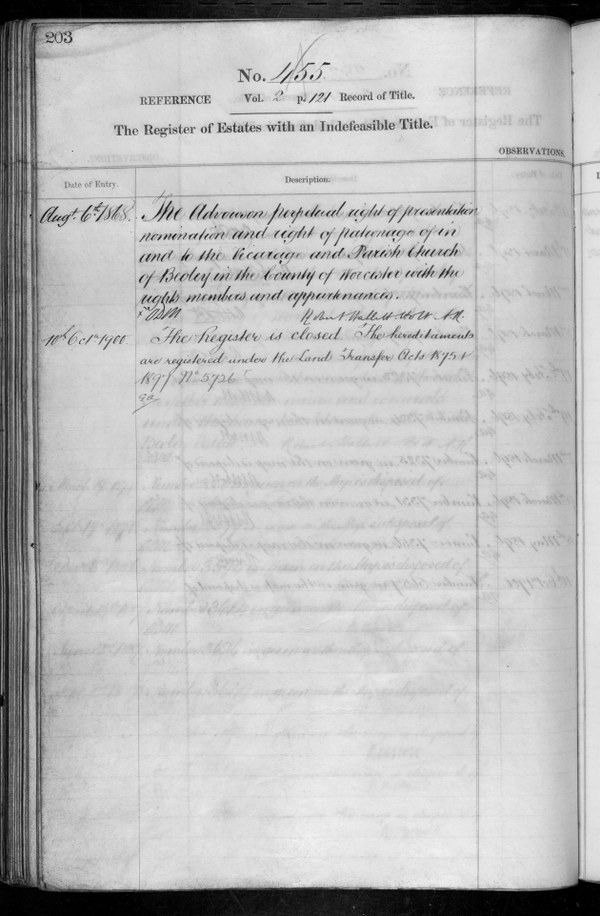 203
No. 455
REFERENCE Vol. 2 p. 121 Record of Title.
The Register of Estates with an Indefeasible Title.
OBSERVATIONS.
Date of Entry. Description.
Augt. 6th 1868. The Advowson perpetual right of presentation
nomination and right of patronage of in
and to the Vicarage and Parish Church
of Beoley in the County of Worcester with the
rights members and appurtenances.
Robert Hallett Holt A.R.
10th Octr 1900. The Register is closed The hereditaments
are registered under the Land Transfer Acts 1875 &
1897 No 5726